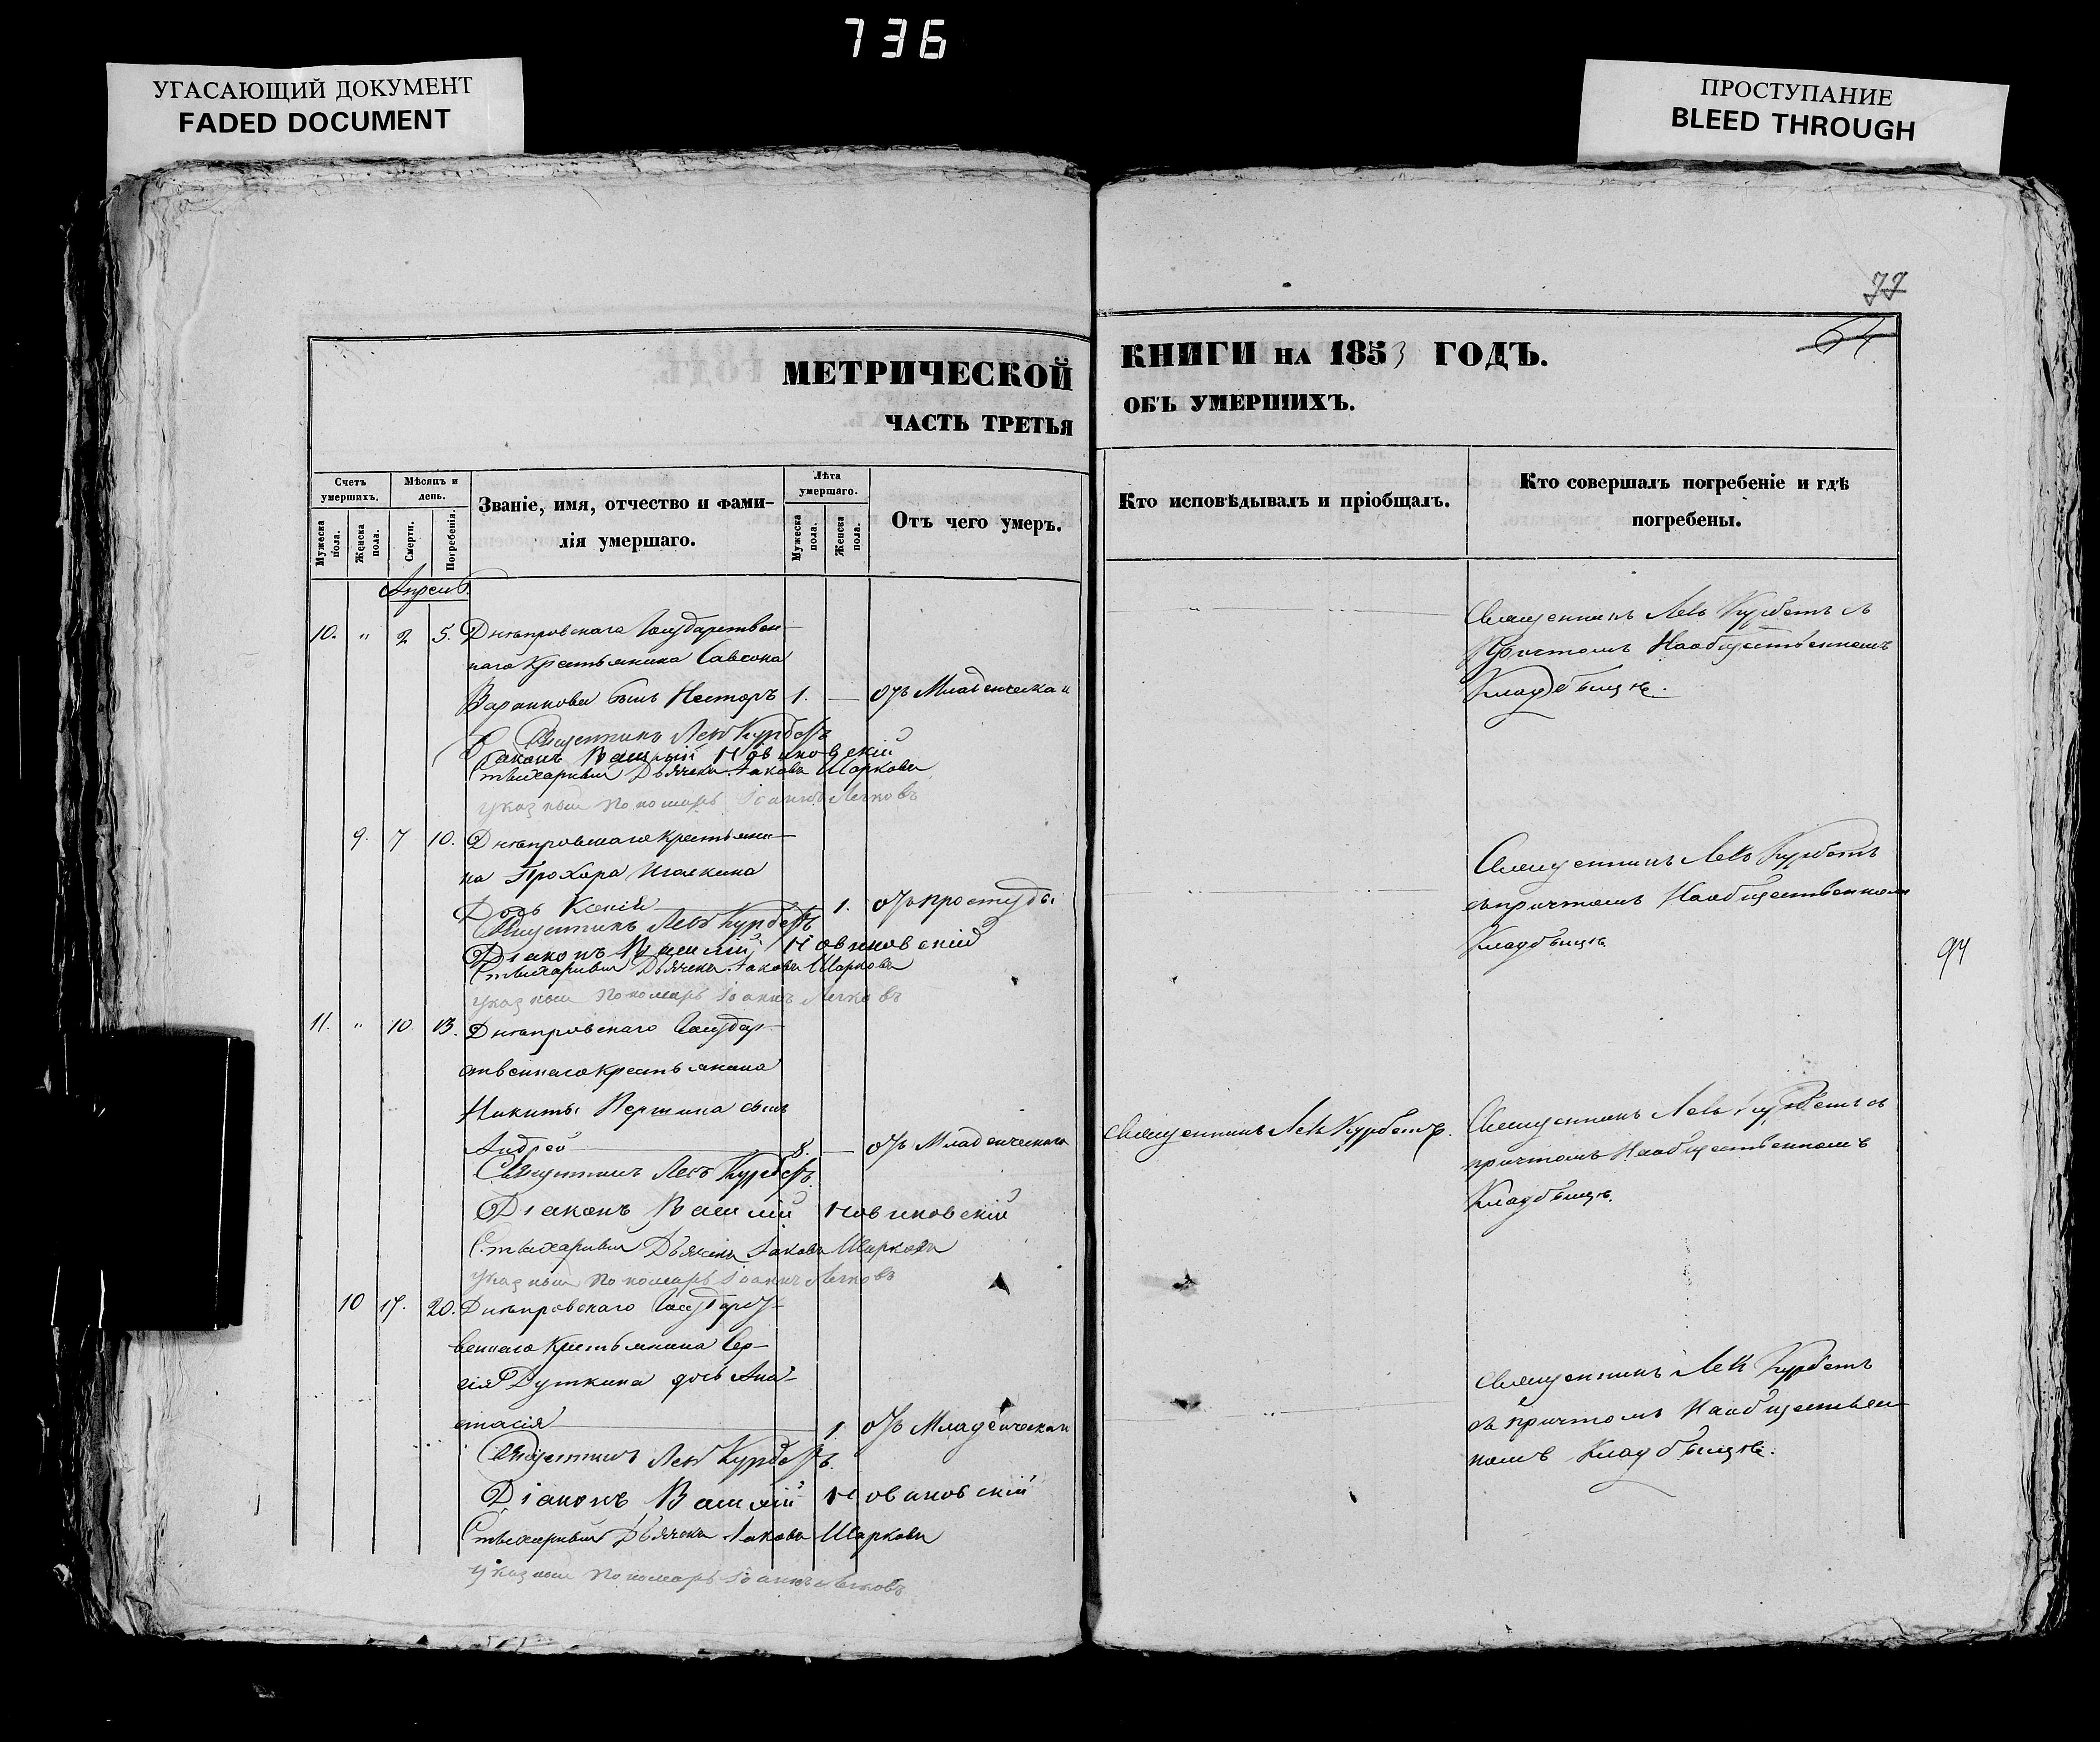 736
УГАСАЮЩИЙ ДОКУМЕНТ
FADED DOCUMENT
ПРОСТУПАНИЕ
BLEED THROUGH
77
64
МЕТРИЧЕСКОЙ
ЧАСТЬ ТРЕТЬЯ
КНИГИ НА 1853 ГОДЪ.
ОБЪ УМЕРШИХЪ.
Счетъ умершихъ.
Мужеска пола.
Женска пола.
Мѣсяцъ и день.
Смерти.
Погребенія.
Званіе, имя, отчество и фами-
лія умершаго.
Лѣта умершаго.
Мужеска пола.
Женска пола.
Отъ чего умеръ.
Кто исповѣдывалъ и пріобщалъ.
Кто совершалъ погребеніе и гдѣ
погребены.
Апрель
10. " 2 5. Днѣпровскаго Государствен-
наго крестьянина Савсона
сынъ Несторъ 1. — отъ Младенческаи
Священникъ Левъ Курбетъ
Діаконъ Василій Новиковскій
Стихарный Дьячекъ Іаковъ Шарковъ
указный пономарь Іоаннъ Легковъ
Священникъ Левъ Курбетъ съ
причтомъ Наобщественномъ
Кладбищѣ.
9. 7 10. Днѣпровскаго крестьяни-
на Прохора
Дочь Ксенія 1. отъ простуды
Священникъ Левъ Курбетъ
Діаконъ Василій Новиковскій
Стихарный Дьячекъ Іаковъ Шарковъ
указный пономарь Іоаннъ Легковъ
Священникъ Левъ Курбетъ
съ причтомъ Наобщественномъ
Кладбищѣ
94
11. " 10. 13. Днѣпровскаго Государ-
ственнаго крестьянина
Никиты Першина сынъ
Андрей 8. — отъ Младенческаго
Священникъ Левъ Курбетъ.
Діаконъ Василій Новиковскій
Стихарный Дьячекъ Іаковъ Шарковъ
указный пономарь Іоаннъ Легковъ
Священникъ Левъ Курбетъ.
Священникъ Левъ Курбетъ съ
причтомъ Наобщественномъ
Кладбищѣ.
10 17. 20. Днѣпровскаго Государст-
веннаго крестьянина Сер-
гія Дуткина дочь Ана-
стасія 1. отъ Младенческаи
Священникъ Левъ Курбетъ.
Діаконъ Василій Новиковскій
Стихарный Дьячекъ Іаковъ Шарковъ
указный пономарь Іоаннъ Легковъ
Священникъ Левъ Курбетъ
съ причтомъ Наобществен-
номъ Кладбищѣ.